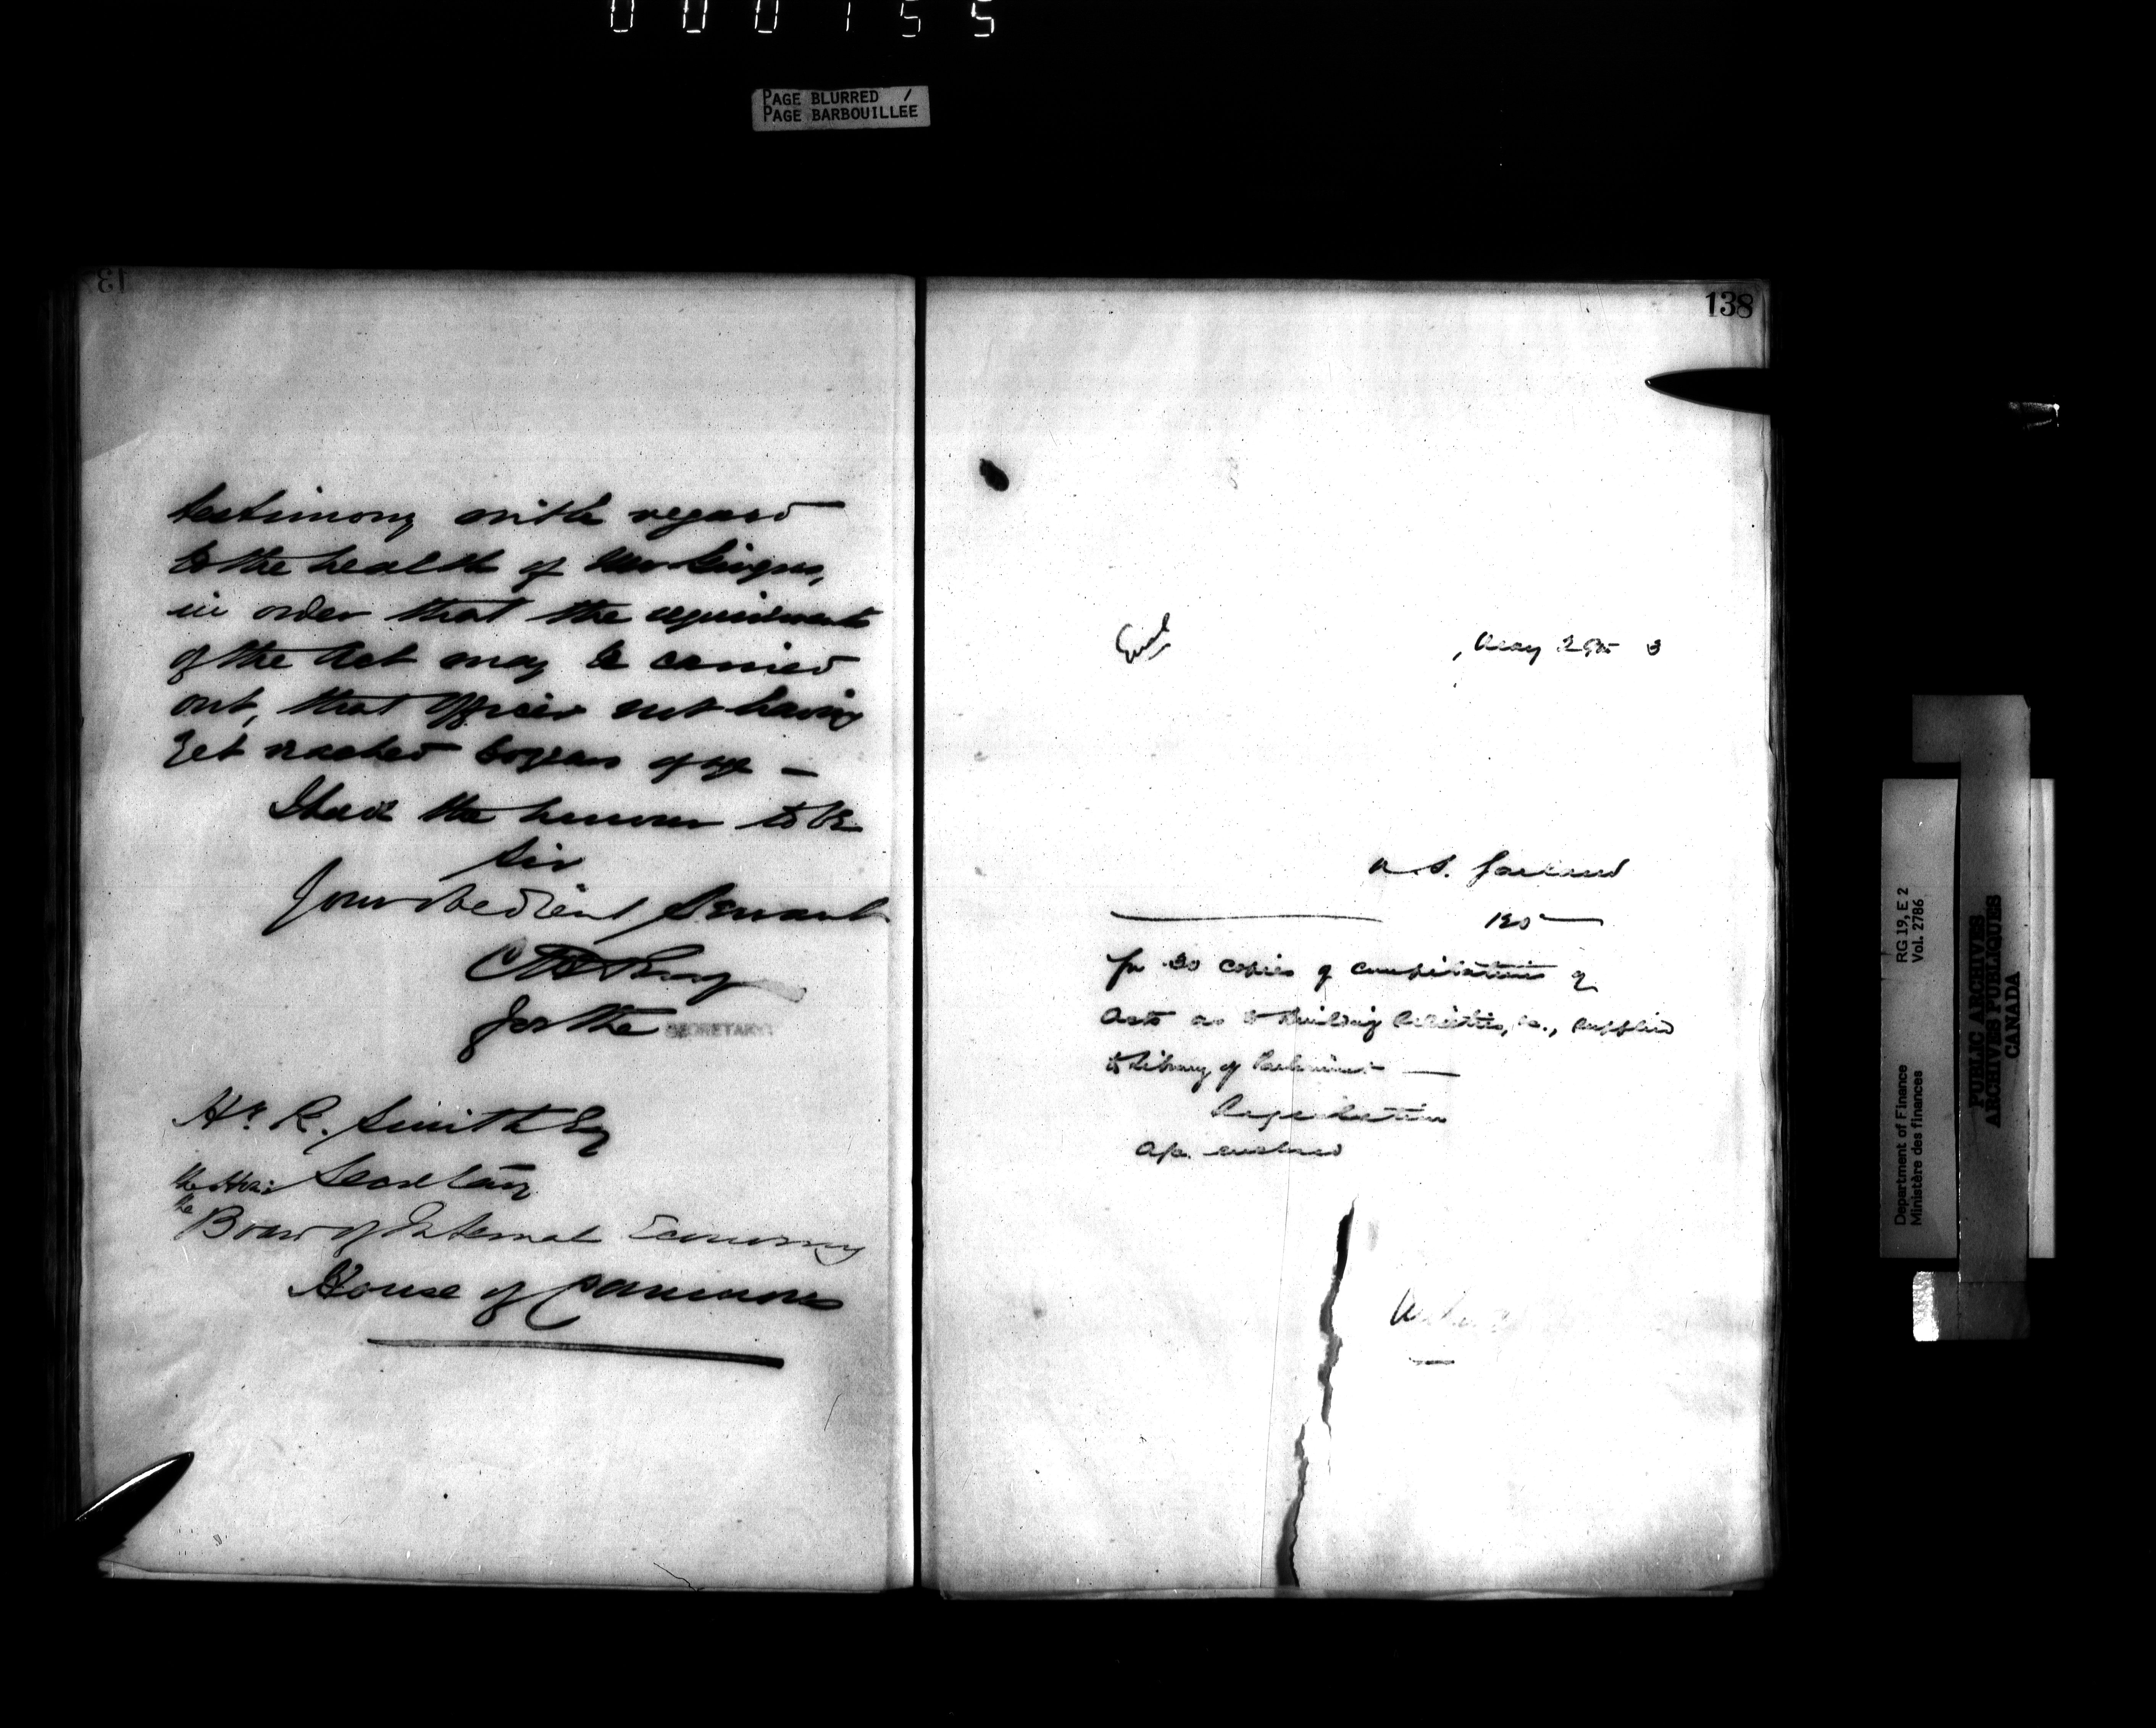 000155
PAGE BLURRED /
PAGE BARBOUILLÉE
testimony with regard
to the health of
in order that the requirements
of the Act may be carried
out, that Officer not having
yet reached 60 years of age —
I have the honour to be
Sir
Your obedient Servant
for the SECRETARY
H. R. Smith Esq
Secretary
the Board of Internal Economy
House of Commons
138
May
N. S. Garland
120
for 30 copies of compilation of
Acts as to Building Societies, &c., supplied
to Library of Parliament —
enclosed
Department of Finance RG 19, E 2
Ministère des finances Vol. 2786
PUBLIC ARCHIVES
ARCHIVES PUBLIQUES
CANADA